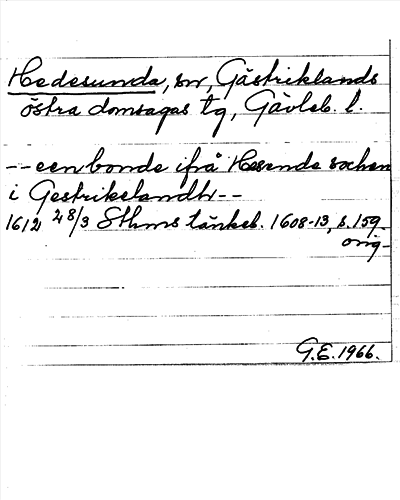 Hedesunda, sn, Gästriklands
östra domsagas tg, Gävleb. l.
-- een bonde ifrå Hesunda sochen
i Gestrikelandh --
1612 28/3 Sthms tänkeb. 1608-13, s. 159.
orig.
G.E. 1966.